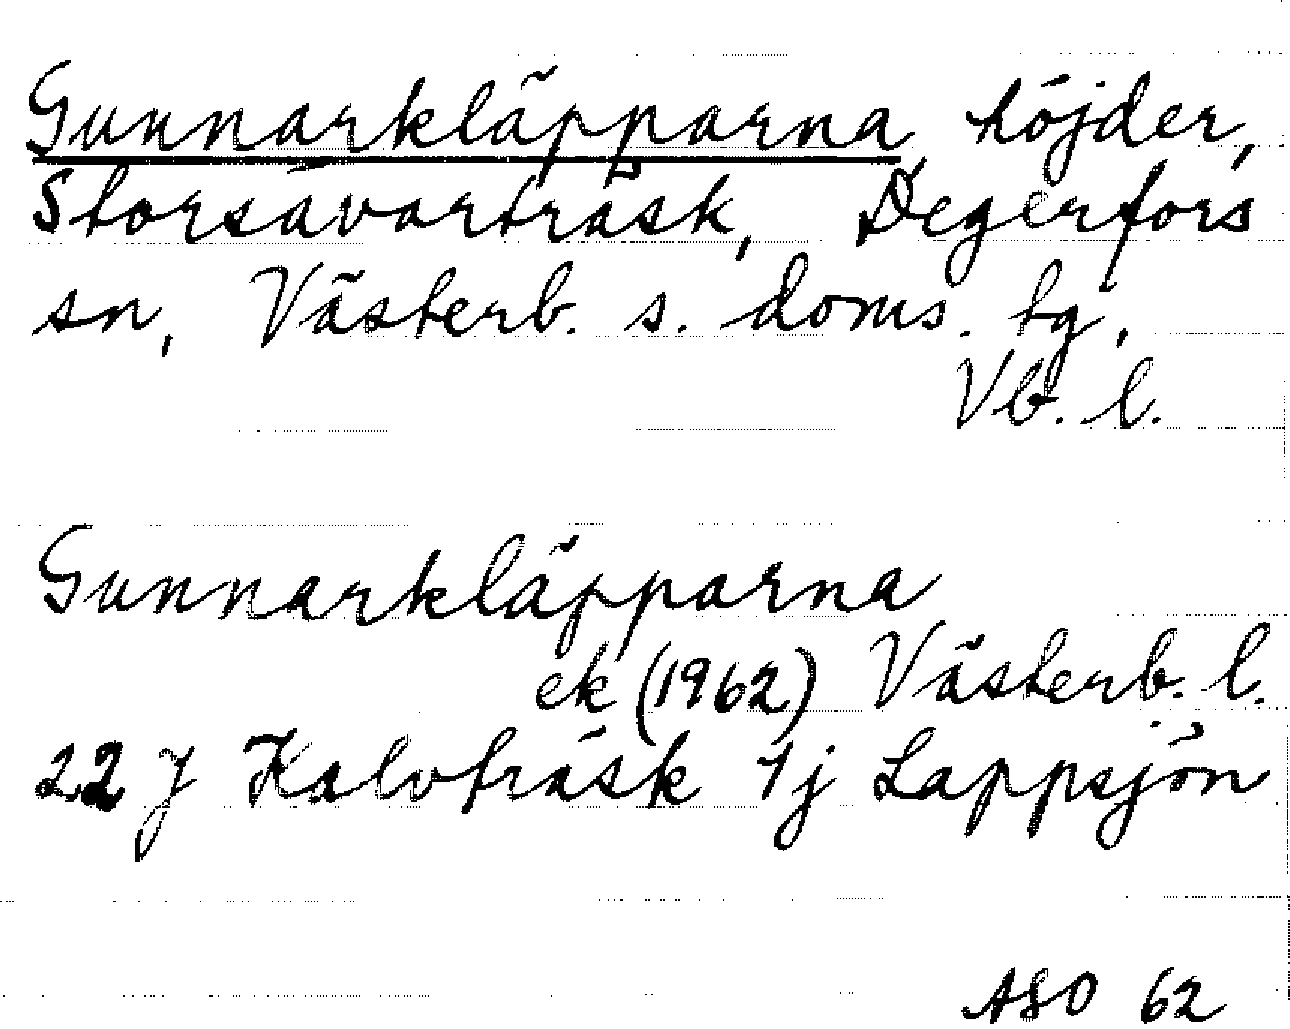 Gunnarkläpparna, höjder,
Storsävarträsk, Degerfors
sn, Västerb. s. doms. tg,
Vb. l.
Gunnarkläpparna
ek (1962) Västerb. l.
22 J Kalvträsk 1j Lappsjön
ASO 62